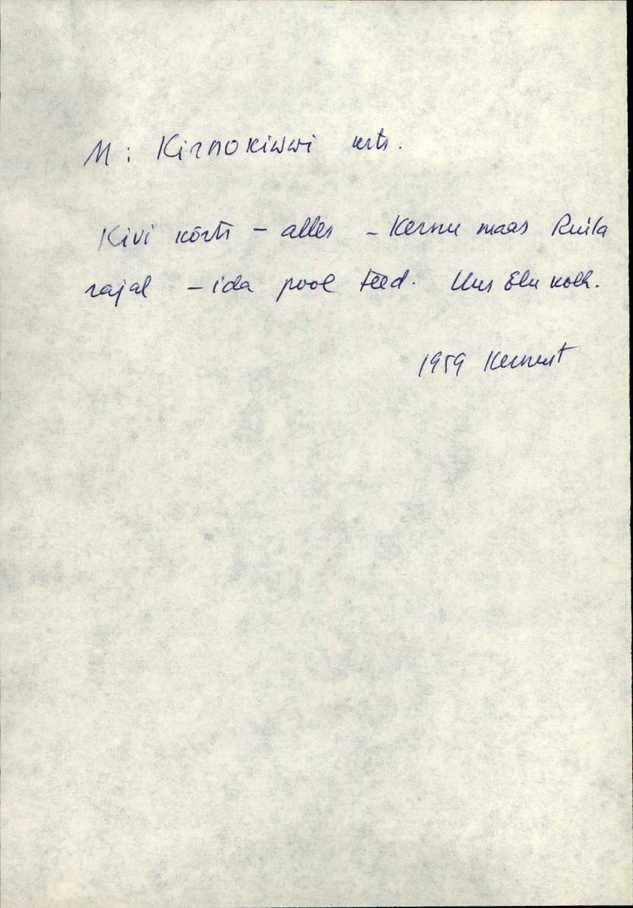 M: Kirnokiwwi krts.
Kivi kõrts – alles – Kernu maas Ruila
rajal – ida pool teed. Uus Elu kolh.
1959 Kernust